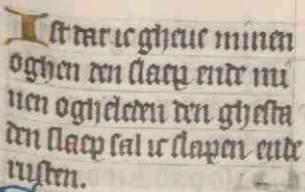 Ist dat ic gheue minen
oghen den slaep ende mi
nen ogheleden den ghesta
den slaep sal ic slapen ende
rusten.